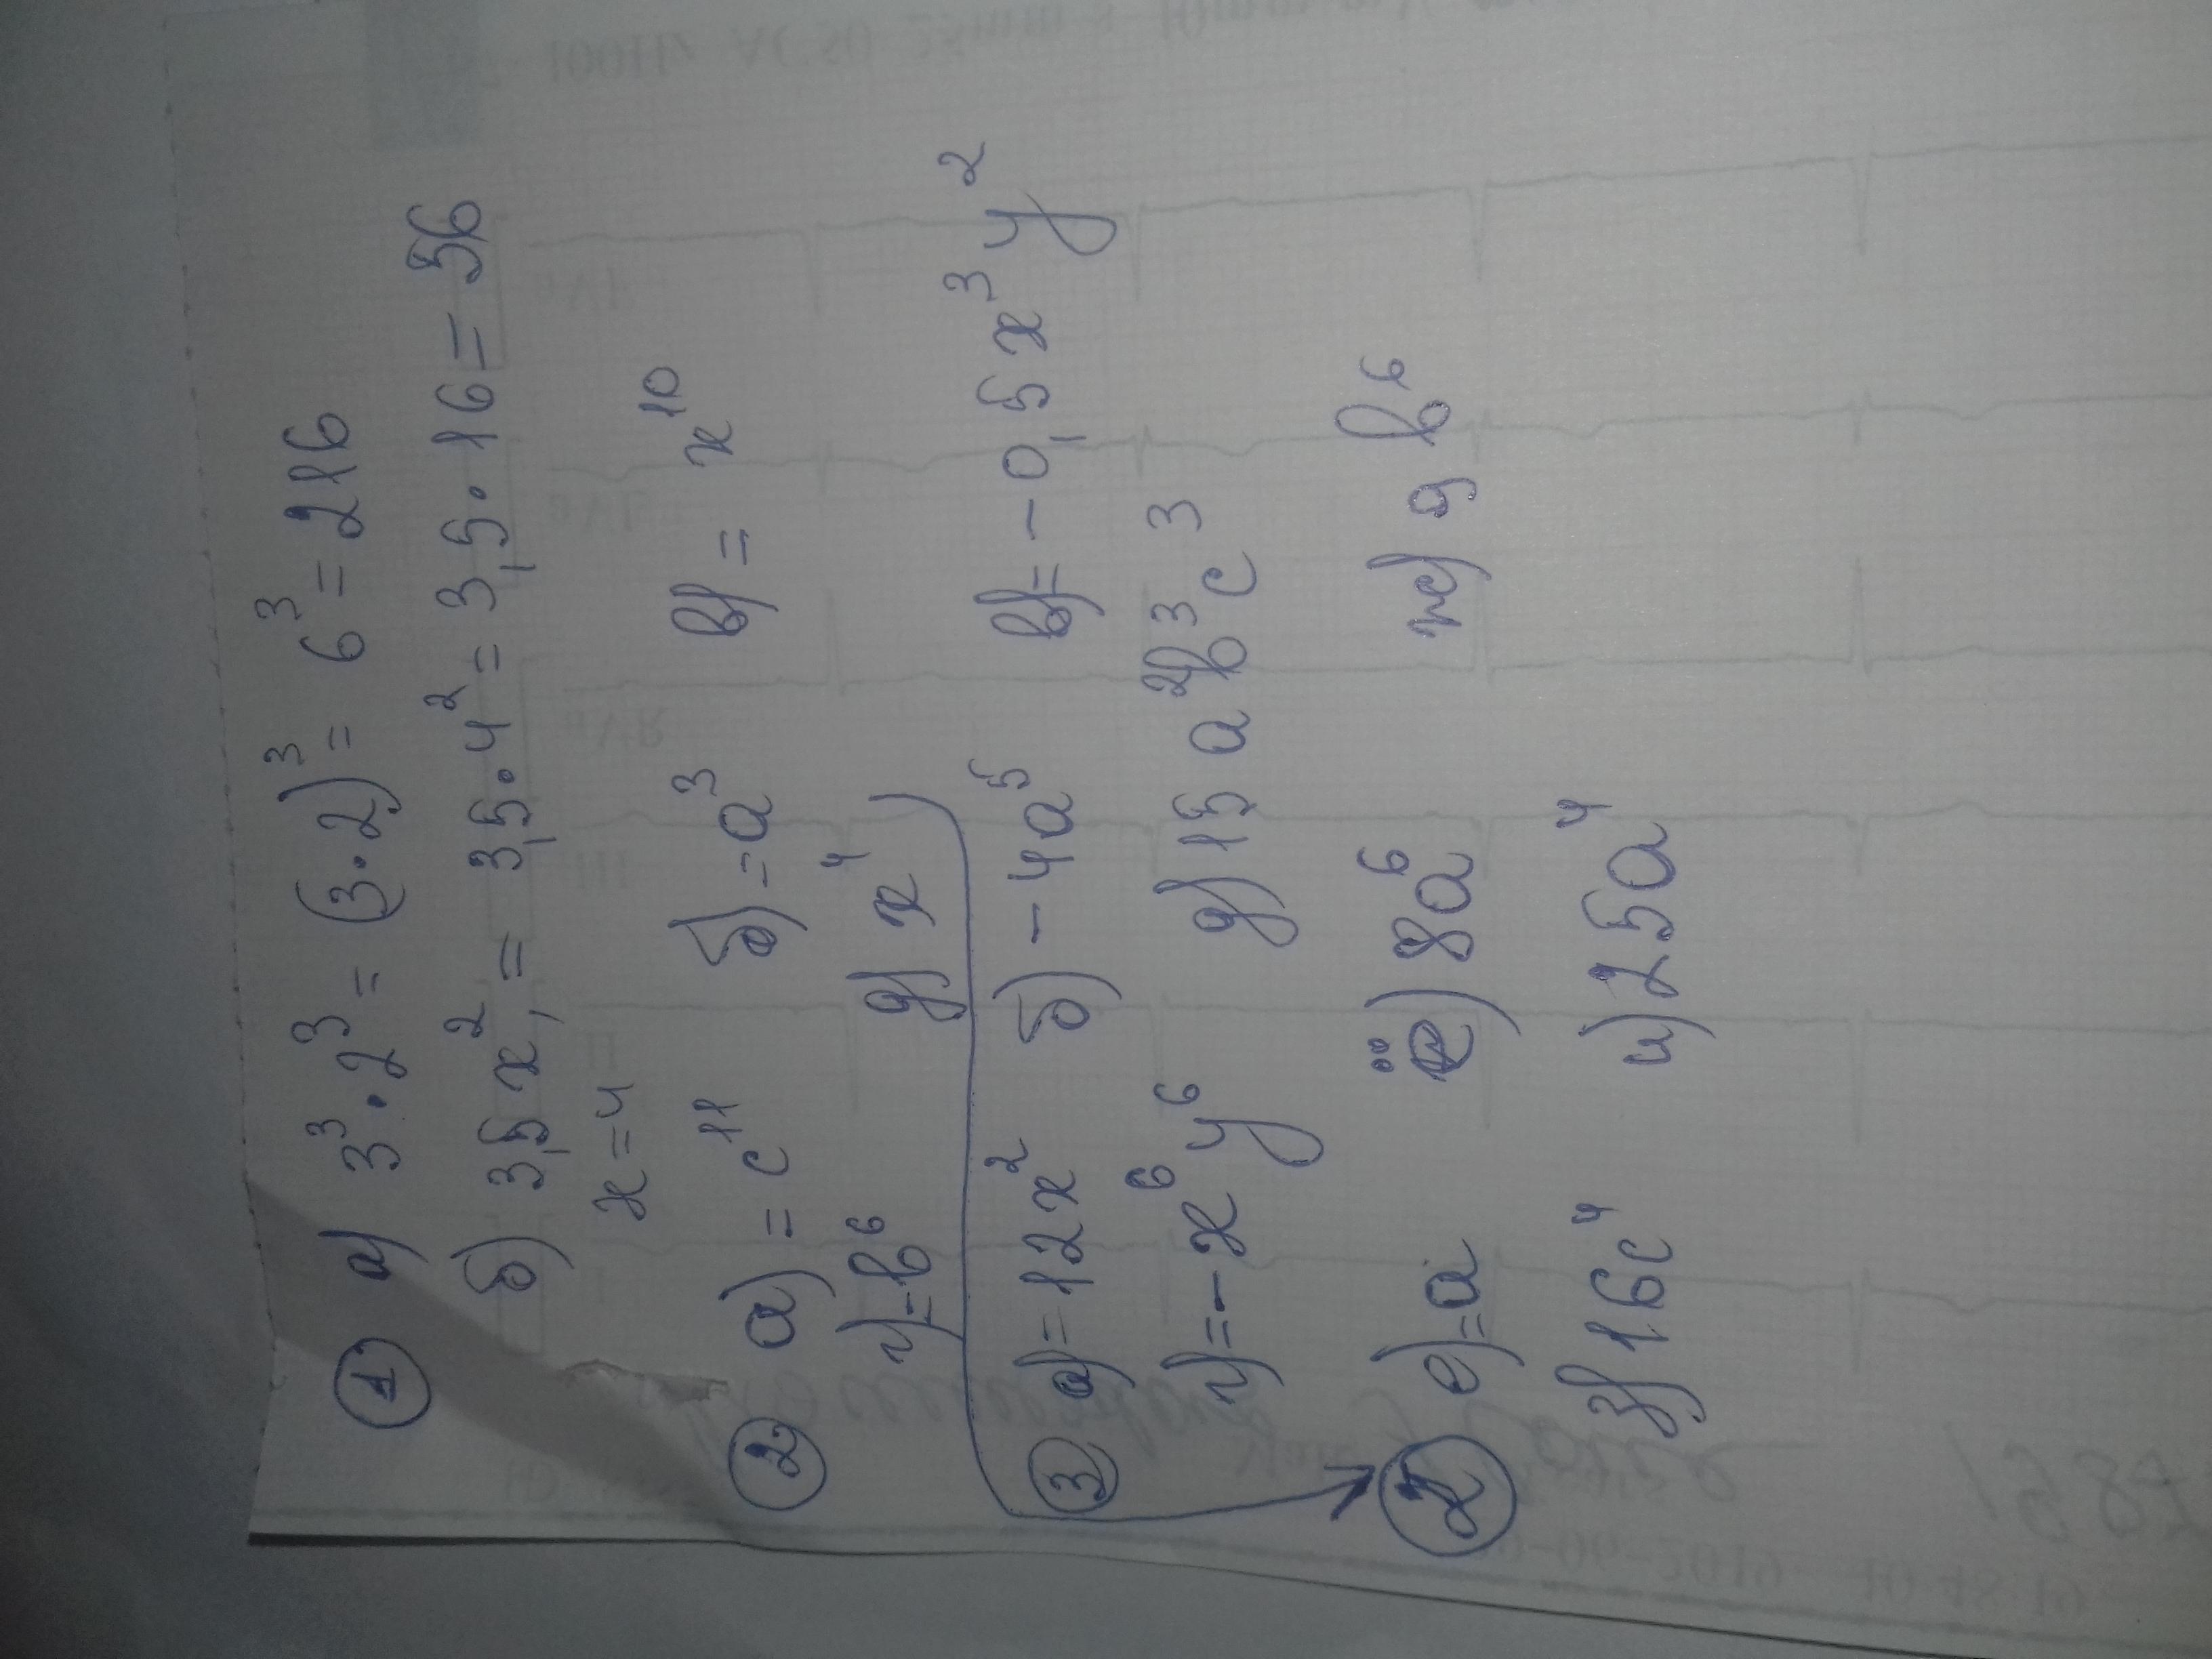 ① а) 3³·2³ = (3·2)³ = 6³ = 216
б) 3,5x², = 3,5·4² = 3,5·16 = 56
x=4
② а) = c¹¹ б) = a³ в) = x¹⁰
г) = b⁶ д) x⁴
③ а) = 12x² б) -4a⁵ в) = -0,5x³y²
г) = -x⁶y⁶ д) 15a²b³c³
② е) = a ё) 8a⁶ ж) 9b⁶
з) 16c⁴ и) 25a⁴